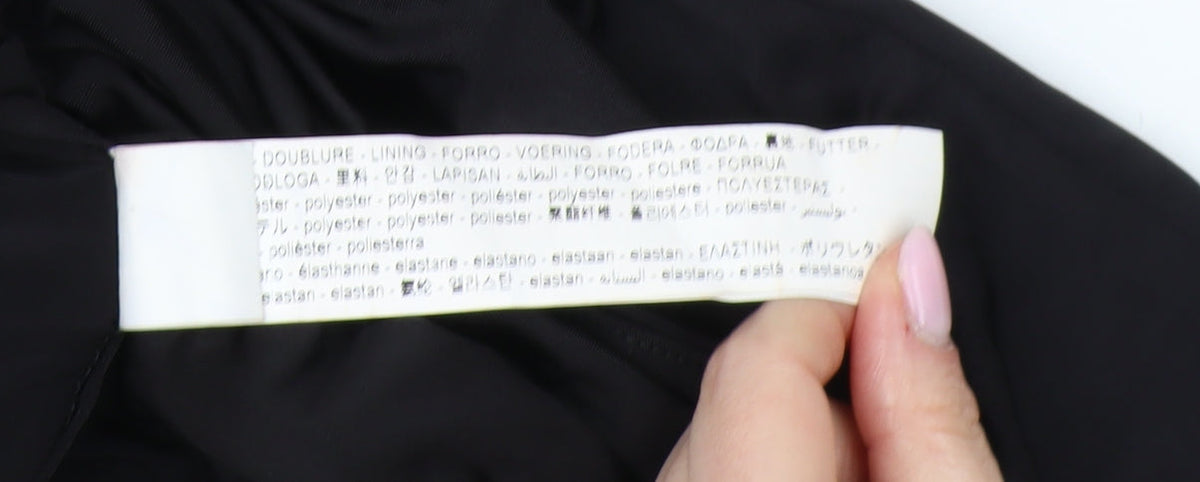 DOUBLURE - LINING - FORRO - VOERING - FODERA - ΦΟΔΡΑ - 裏地 - FUTTER -
- 里料 - 안감 - LAPISAN - البطانة - FORRO - FOLRE - FORRUA
- polyester - polyester - poliéster - polyester - poliestere - ΠΟΛΥΕΣΤΕΡΑΣ -
- polyester - polyester - poliester - 聚酯纤维 - 폴리에스터 - poliester - بوليستر -
- poliéster - poliesterra
- élasthanne - elastane - elastano - elastaan - elastan - ΕΛΑΣΤΙΝΗ - ポリウレタ
elastan - elastan - 氨纶 - 엘라스탄 - elastan - - elastano - elastà - elastanoa